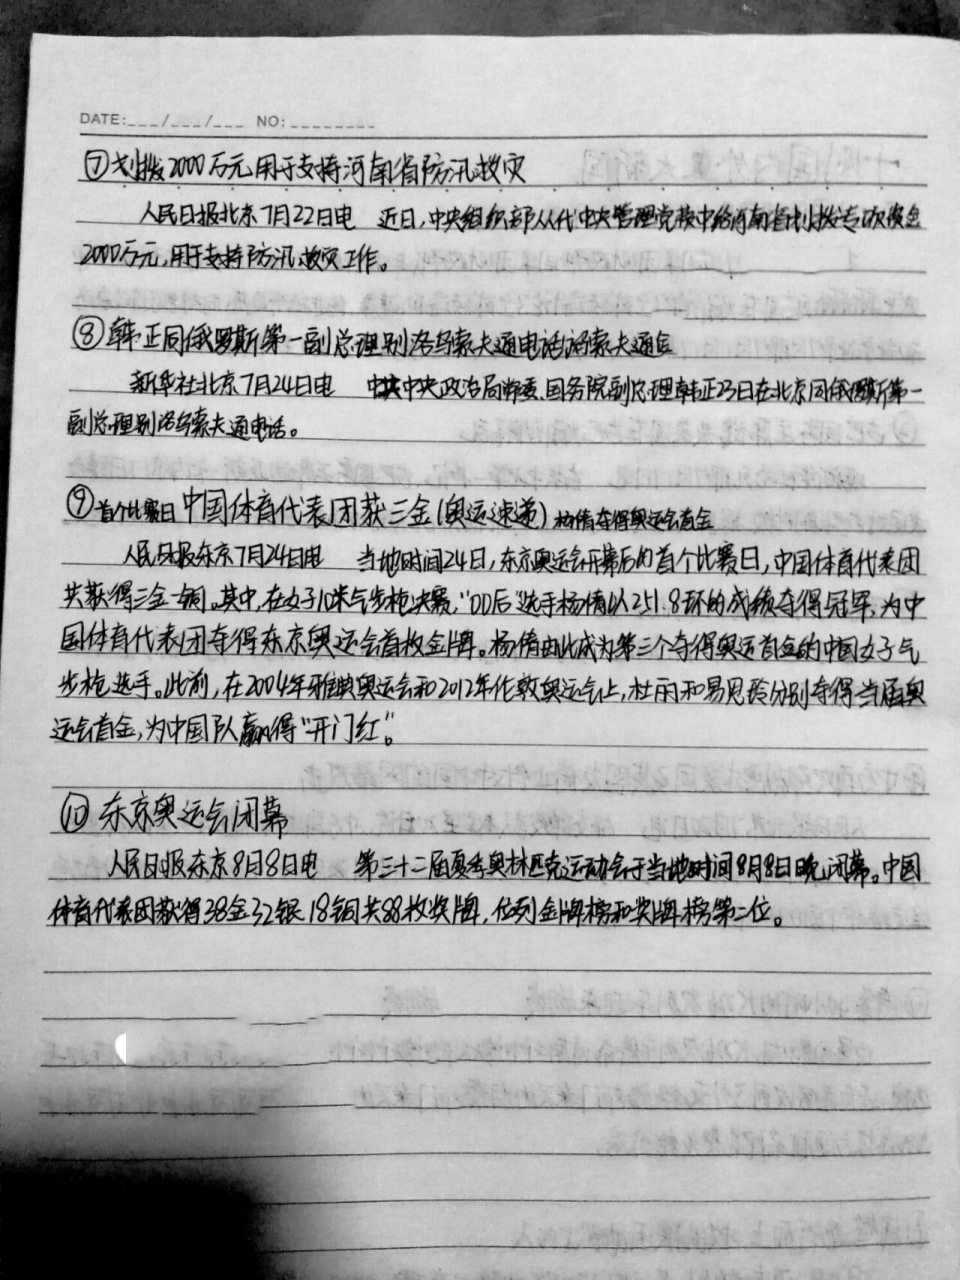 DATE:___/___/___ NO:________
⑦划拨2000万元用于支持河南省防汛救灾
人民日报北京7月22日电 近日,中央组织部从代中央管理党费中给河南省划拨专项资金
2000万元,用于支持防汛救灾工作。
⑧韩正同俄罗斯第一副总理别洛乌索夫通电话
新华社北京7月24日电 中共中央政治局常委、国务院副总理韩正23日在北京同俄罗斯第一
副总理别洛乌索夫通电话。
⑨首个比赛日中国体育代表团获三金(奥运速递)杨倩夺得奥运会首金
人民日报东京7月24日电 当地时间24日,东京奥运会开幕后的首个比赛日,中国体育代表团
共获得三金一铜。其中,在女子10米气步枪决赛,“00后”选手杨倩以251.8环的成绩夺得冠军,为中
国体育代表团夺得东京奥运会首枚金牌。杨倩由此成为第三个夺得奥运首金的中国女子气
步枪选手。此前,在2004年雅典奥运会和2012年伦敦奥运会上,杜丽和易思玲分别夺得当届奥
运会首金,为中国队赢得“开门红”。
⑩东京奥运会闭幕
人民日报东京8月8日电 第三十二届夏季奥林匹克运动会于当地时间8月8日晚闭幕。中国
体育代表团获得38金32银18铜共88枚奖牌,位列金牌榜和奖牌榜第二位。